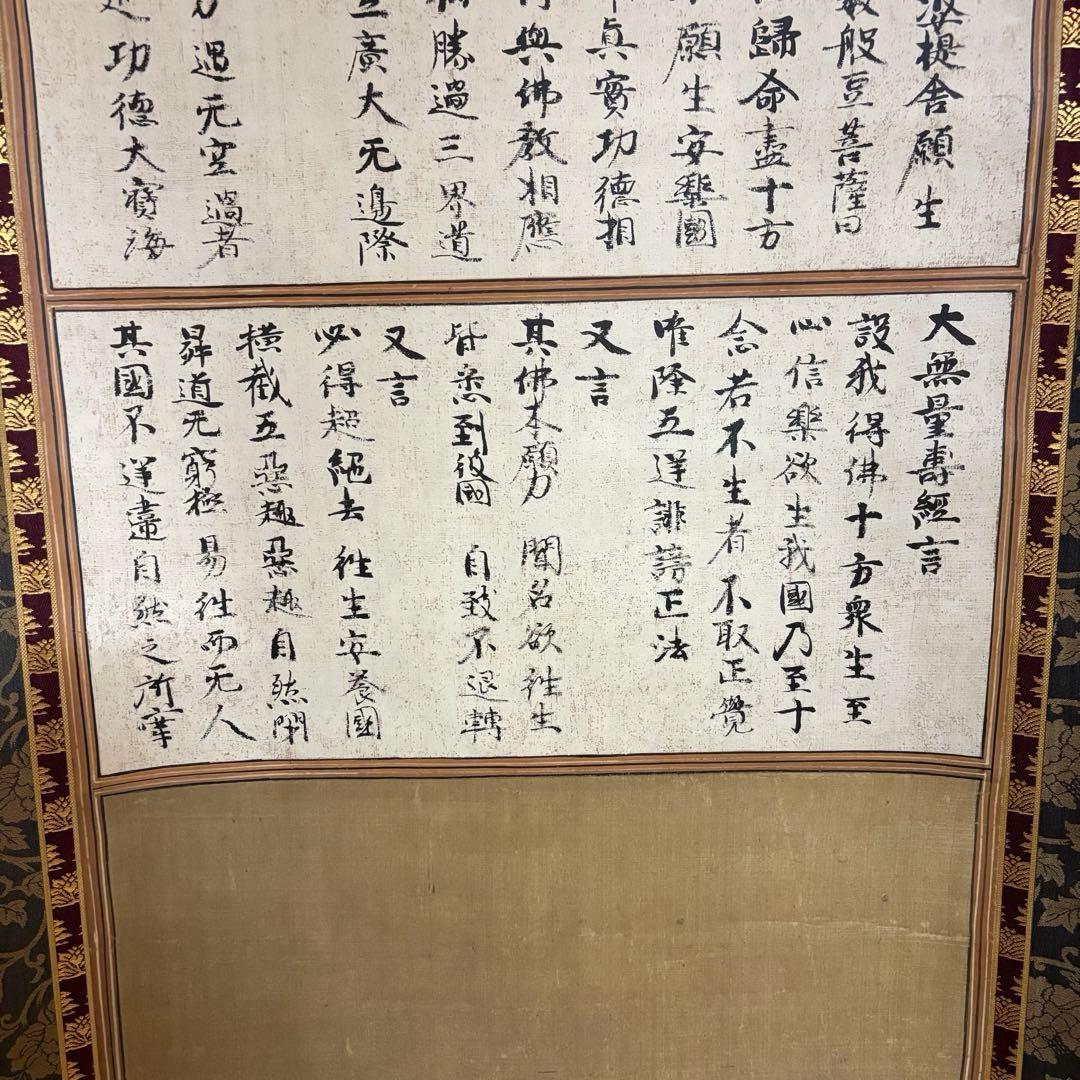 提舍願生
般豆菩薩曰
歸命盡十方
願生安樂國
眞實功德相
與佛教相應
勝過三界道
廣大无邊際
遇无空過者
功德大寶海
大無量壽經言
設我得佛十方衆生至
心信樂欲生我國乃至十
念若不生者不取正覺
唯除五逆誹謗正法
又言
其佛本願力 聞名欲往生
皆悉到彼國 自致不退轉
又言
必得超絕去往生安養國
横截五惡趣惡趣自然閇
昇道无窮極易往而无人
其國不逆違自然之所牽